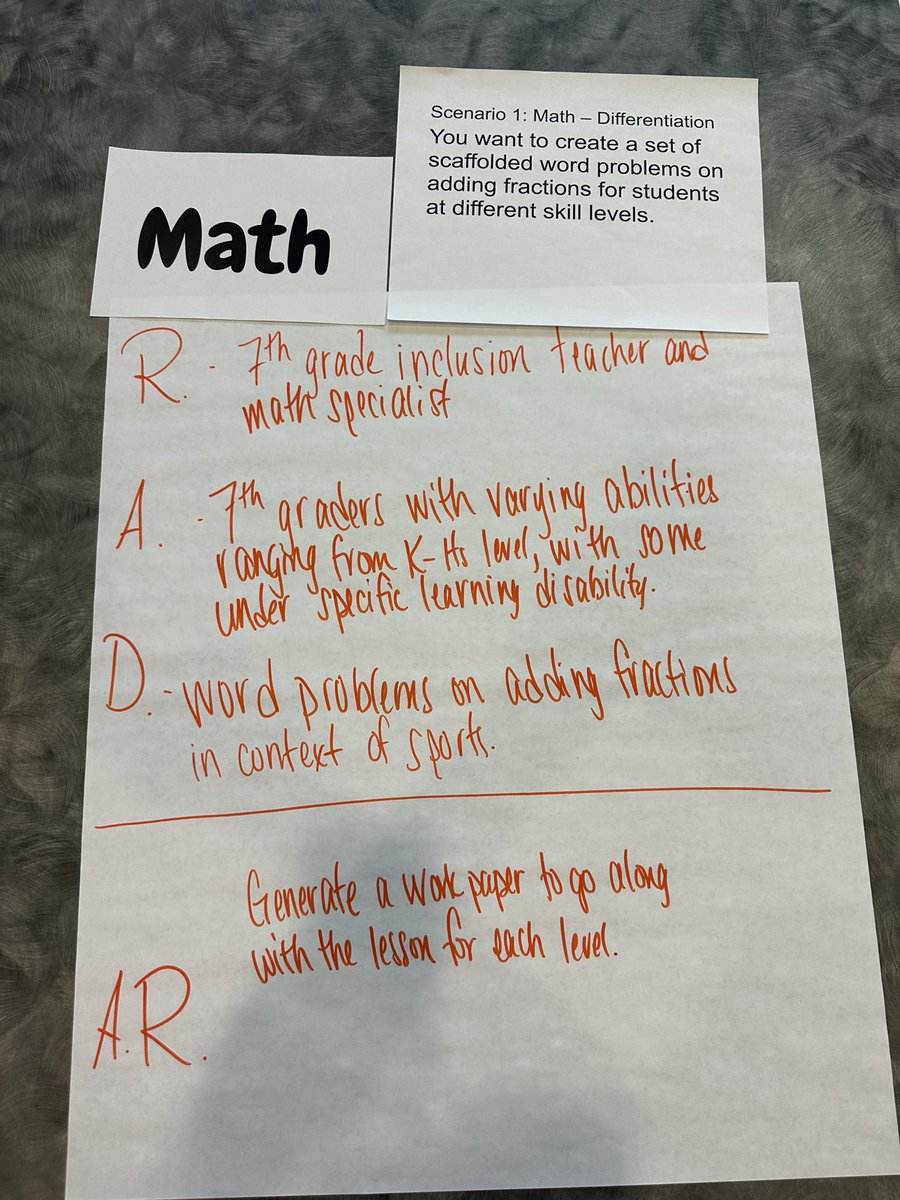 Math
Scenario 1: Math – Differentiation
You want to create a set of
scaffolded word problems on
adding fractions for students
at different skill levels.
R. - 7th grade inclusion teacher and
math specialist
A. - 7th graders with varying abilities
ranging from K-Hs level, with some
under specific learning disability.
D. - word problems on adding fractions
in context of sports.
Generate a work paper to go along
with the lesson for each level.
A.R.